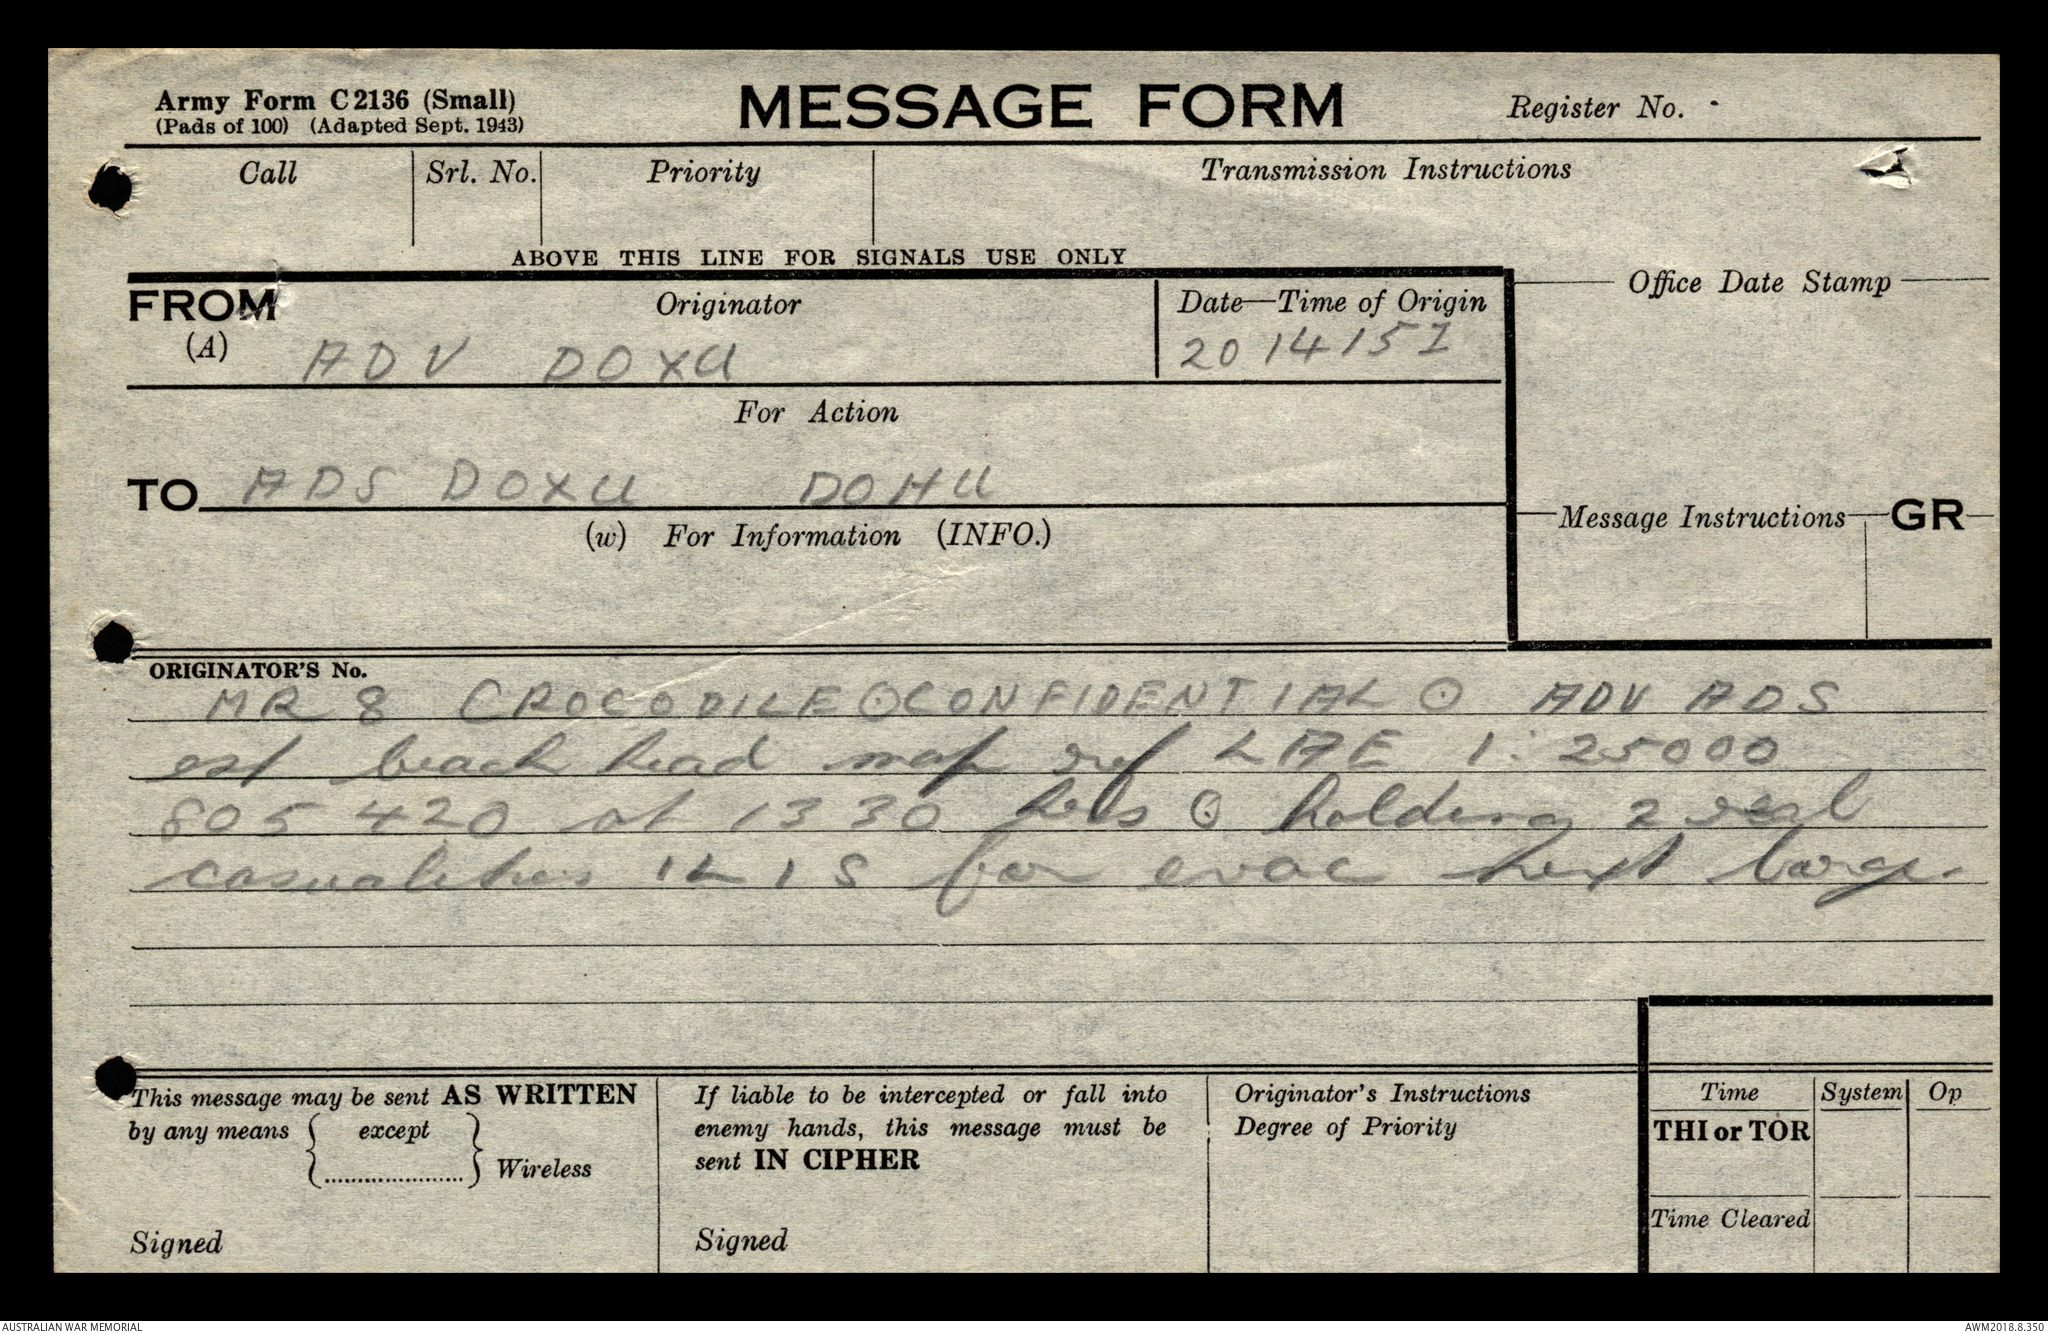 Army Form C2136 (Small)
(Pads of 100) (Adapted Sept. 1943)
MESSAGE FORM
Register No.
Call
Srl. No.
Priority
Transmission Instructions
ABOVE THIS LINE FOR SIGNALS USE ONLY
FROM
(A)
Originator
ADV DOXU
Date—Time of Origin
201415I
Office Date Stamp
For Action
TO ADS DOXU DOHU
(w) For Information (INFO.)
Message Instructions GR
ORIGINATOR'S No.
MR 8 CROCODILE ⊙ CONFIDENTIAL ⊙ ADV ADS
est beach head map ref LAE 1:25000
805420 at 1330 hrs ⊙ holding 2 real
casualties 1L 1S for evac next barge.
This message may be sent AS WRITTEN
by any means { except
....................... } Wireless
Signed
If liable to be intercepted or fall into
enemy hands, this message must be
sent IN CIPHER
Signed
Originator's Instructions
Degree of Priority
Time System Op
THI or TOR
Time Cleared
AUSTRALIAN WAR MEMORIAL
AWM2018.8.350